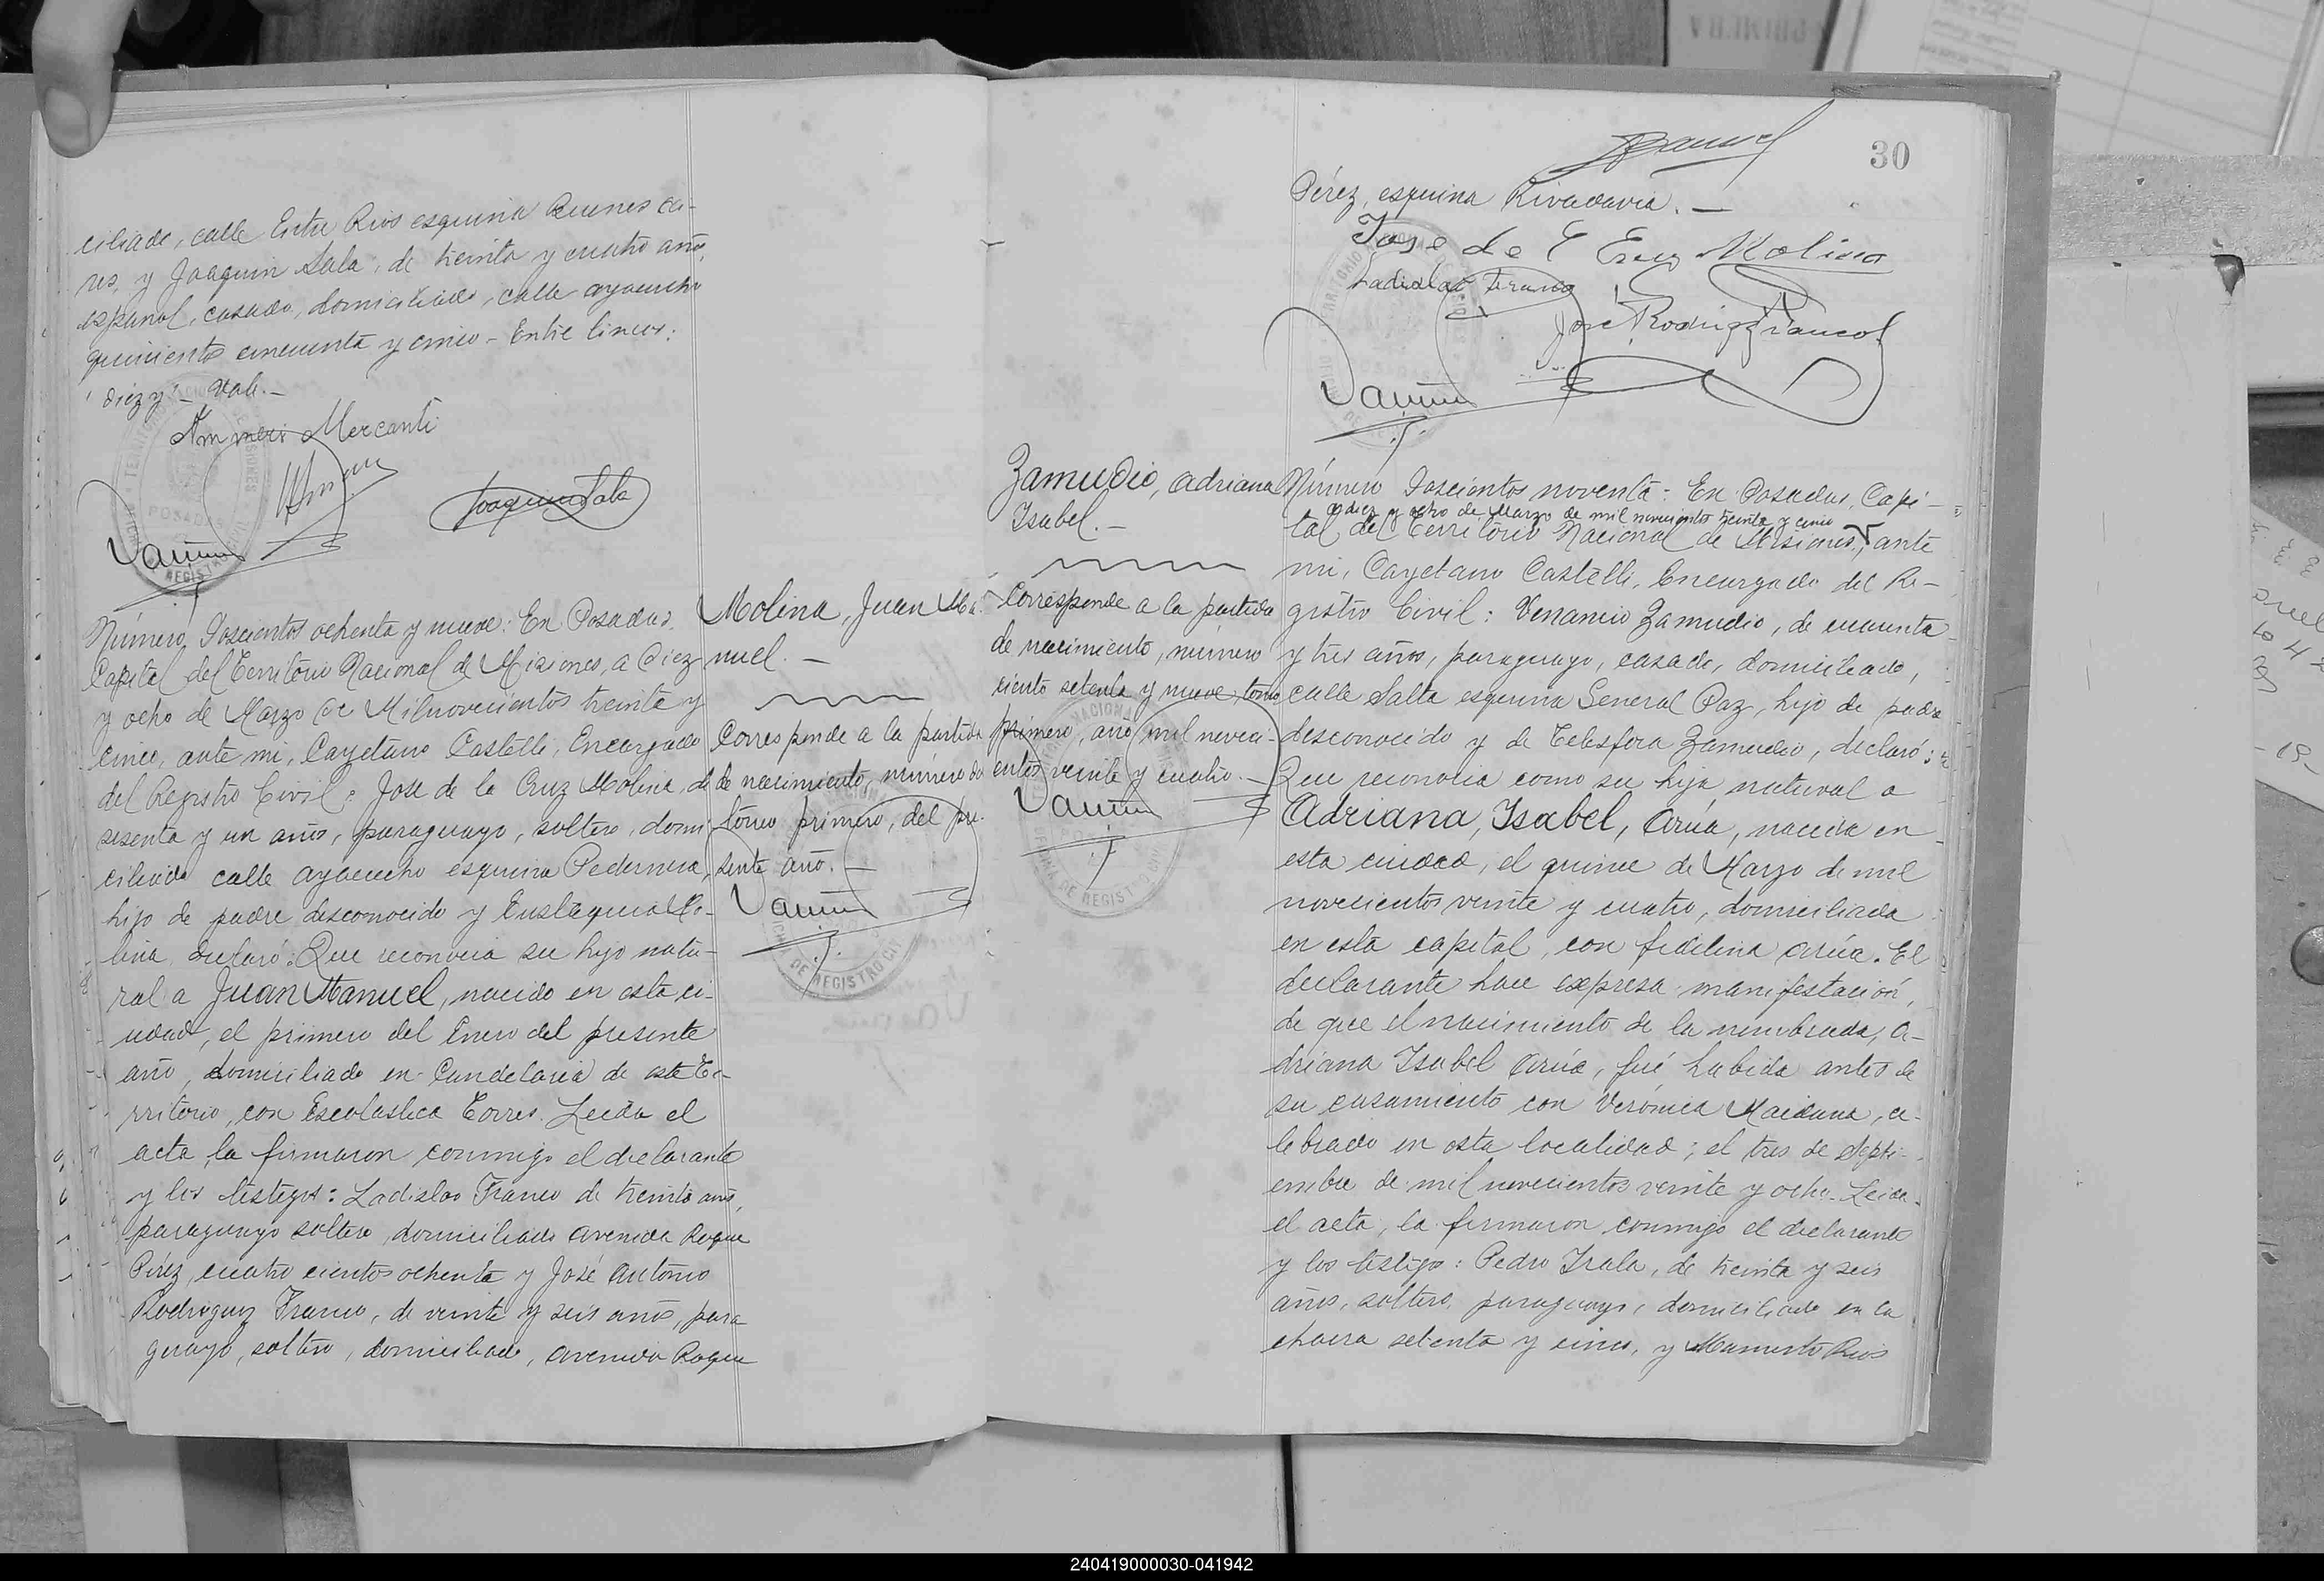 ciliado, calle Entre Rios esquina Buenos Ai-
res, y Joaquin Sala, de treinta y cuatro años,
español, casado, domiciliado, calle Ayacucho
quinientos cincuenta y cinco - Entre lineas:
"diez y" - Vale.-
Mercanti
Joaquin Sala
Número, Doscientos ochenta y nueve: En Posadas,
Capital del Territorio Nacional de Misiones, a diez
y ocho de Marzo de Mil novecientos treinta y
cinco, ante mi, Cayetano Castelli, Encargado
del Registro Civil: Jose de la Cruz Molina, de
sesenta y un años, paraguayo, soltero, domi-
ciliado calle Ayacucho esquina Pedernera,
hijo de padre desconocido y Eustaquia Mo-
lina, declaró: Que reconocia su hijo natu-
ral a Juan Manuel, nacido en esta ci-
udad, el primero del Enero del presente
año, domiciliado en Candelaria de este Te-
rritorio, con Escolastica Torres. Leida el
acta, la firmaron conmigo el declarante
y los testigos: Ladislao Franco de treinta años,
paraguayo soltero, domiciliado avenida Roque
Pérez, cuatro cientos ochenta y José Antonio
Rodriguez Franco, de veinte y seis años, para
guayo, soltero, domiciliado, avenida Roque
Molina, Juan Ma-
nuel.-
Corresponde a la partida
de nacimiento, número
tomo primero, del pre-
sente año.-
30
Pérez, esquina Rivadavia.-
Jose de C Cruz Molina
Ladislao Franco
José Rodrigz Franco
Zamudio, Adriana
Isabel.-
Corresponde a la partida
de nacimiento, número
ciento setenta y nueve, tomo
primero, año mil noveci-
entos veinte y cuatro.-
Número Doscientos noventa: En Posadas, Capi-
a diez y ocho de Marzo de mil novecientos treinta y cinco
tal del Territorio Nacional de Misiones, ante
mi, Cayetano Castelli, Encargado del Re-
gistro Civil: Venancio Zamudio, de cuarenta
y tres años, paraguayo, casado, domiciliado,
calle Salta esquina General Paz, hijo de padre
desconocido y de Telesfora Zamudio, declaró:
Que reconocia como su hija natural a
Adriana, Isabel, Arúa, nacida en
esta ciudad, el quince de Marzo de mil
novecientos veinte y cuatro, domiciliada
en esta capital, con fidelina Arúa. El
declarante hace expresa manifestación,
de que el nacimiento de la nombrada, A-
driana Isabel Arúa, fué habida antes de
su casamiento con Verónica Maidana, ce-
lebrado en esta localidad; el tres de Septi-
embre de mil novecientos veinte y ocho. Leida
el acta, la firmaron conmigo el declarante
y los testigos: Pedro Irala, de treinta y seis
años, soltero, paraguayo, domiciliado en la
chacra setenta y cinco, y Mamerto Rios
240419000030-041942